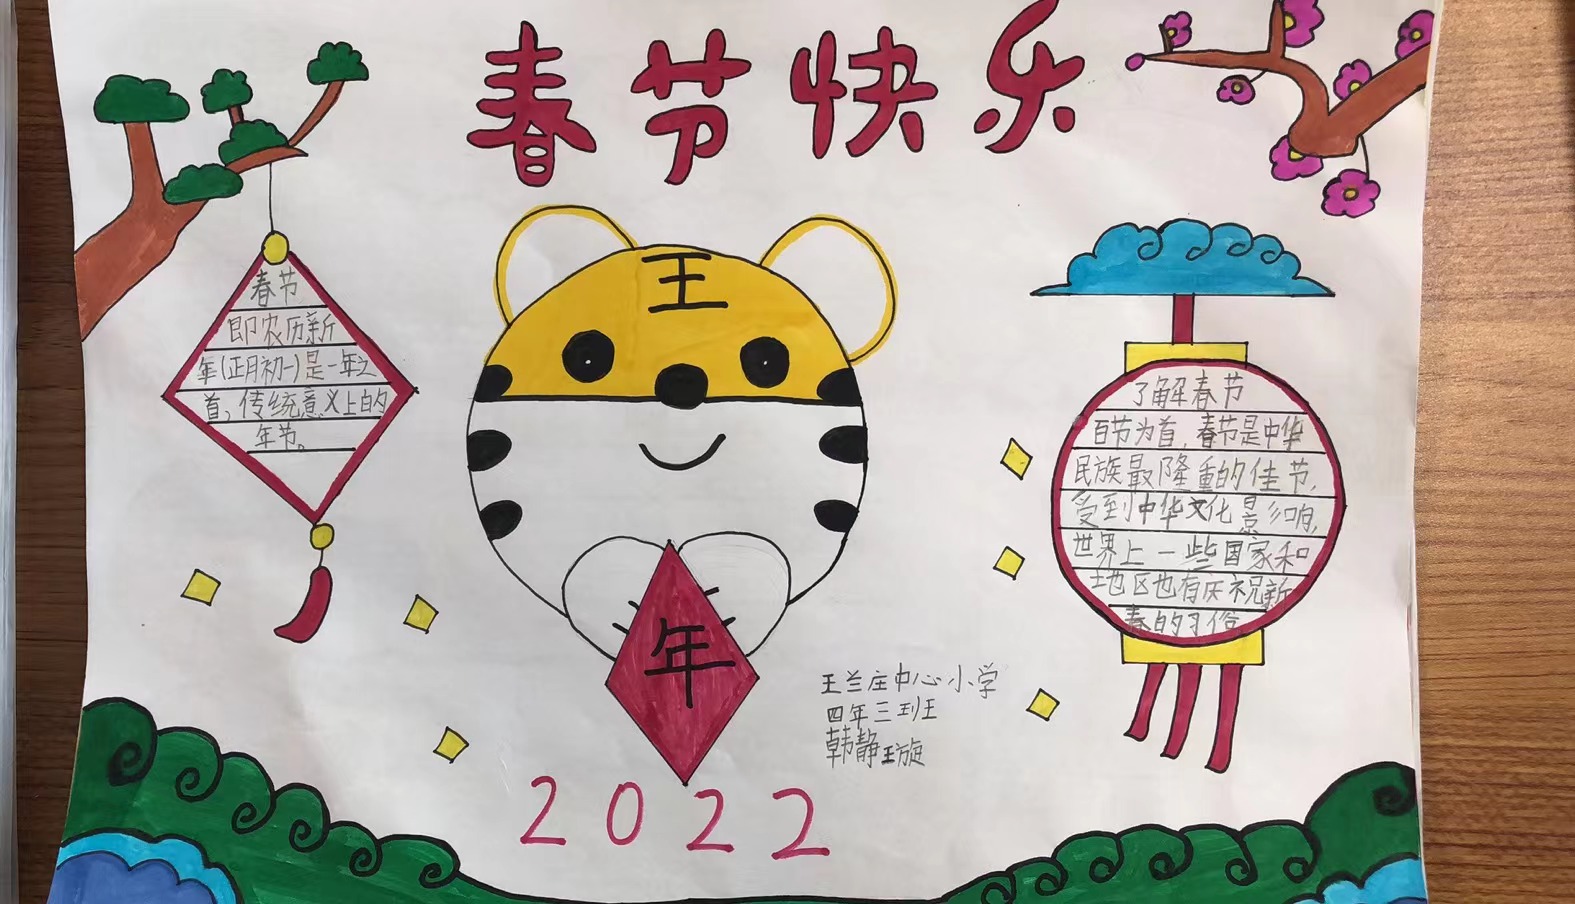 春节快乐
王
春节
即农历新
年(正月初一)是一年之
首,传统意义上的
年节。
了解春节
百节为首,春节是中华
民族最隆重的佳节,
受到中华文化影响,
世界上一些国家和
地区也有庆祝新
春的习俗
年
王兰庄中心小学
四年三班
韩静璇
2022